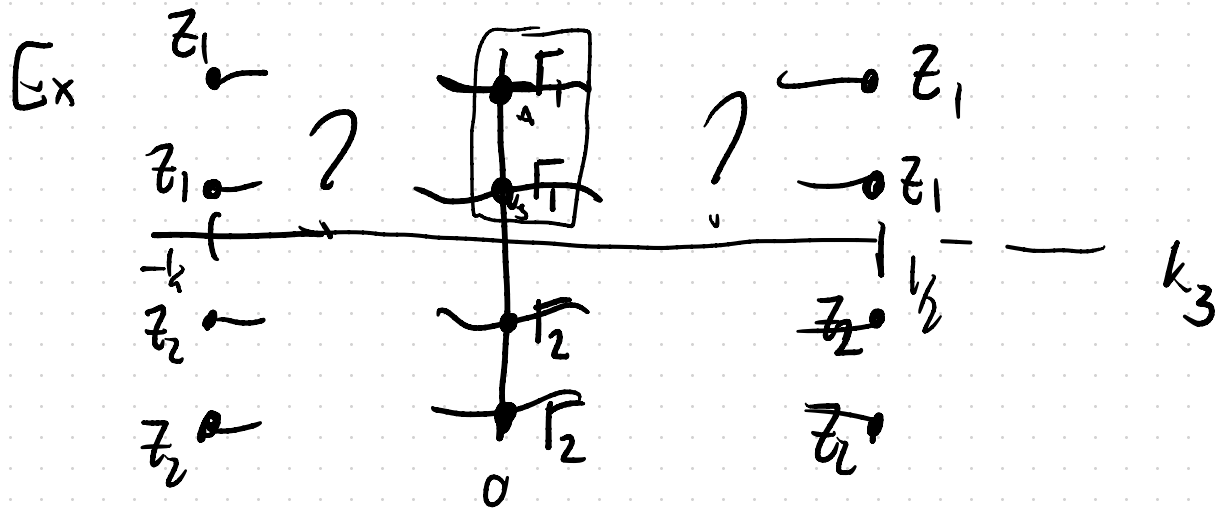 Ex
Z₁ Γ₁ Z₁
Z₁ ? Γ₁ ? Z₁
1/2 k₃
Z₂ Γ₂ Z₂
Z₂ Γ₂ Z₂
0